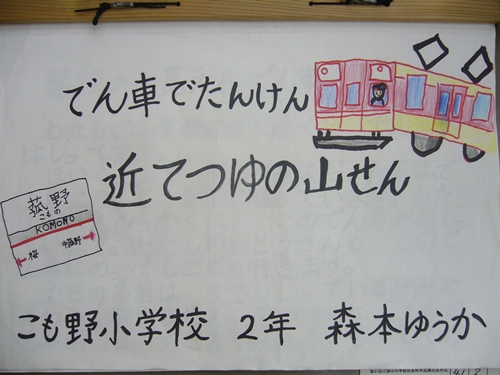 でん車でたんけん
近てつゆの山せん
菰野
こもの
KOMONO
桜 中菰野
こも野小学校 2年 森本ゆうか